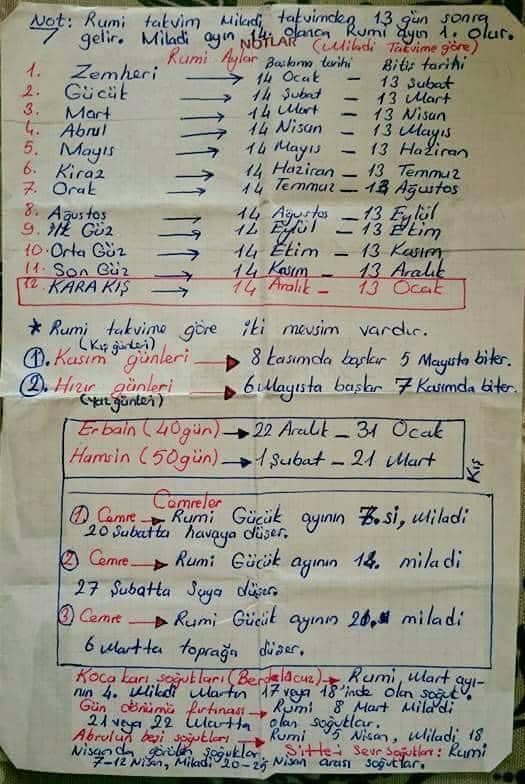 Not: Rumi takvim Miladi takvimden 13 gün sonra
gelir. Miladi ayın 14. olanca Rumi ayın 1. olur.
NOTLAR (Miladi Takvime göre)
Rumi Aylar Başlama tarihi Bitiş tarihi
1. Zemheri → 14 Ocak – 13 Şubat
2. Gücük → 14 Şubat – 13 Mart
3. Mart → 14 Mart – 13 Nisan
4. Abrul → 14 Nisan – 13 Mayıs
5. Mayıs → 14 Mayıs – 13 Haziran
6. Kiraz → 14 Haziran – 13 Temmuz
7. Orak → 14 Temmuz – 13 Ağustos
8. Ağustos → 14 Ağustos – 13 Eylül
9. İlk Güz → 14 Eylül – 13 Ekim
10. Orta Güz → 14 Ekim – 13 Kasım
11. Son Güz → 14 Kasım – 13 Aralık
12. KARA KIŞ → 14 Aralık – 13 Ocak
* Rumi takvime göre iki mevsim vardır.
(Kış günleri)
1. Kasım günleri → 8 kasımda başlar 5 Mayısta biter.
2. Hızır günleri → 6 Mayısta başlar 7 Kasımda biter.
(Yaz günleri)
Erbain (40 gün) → 22 Aralık – 31 Ocak
Hamsin (50 gün) → 1 Şubat – 21 Mart
Kış
Cemreler
1 Cemre → Rumi Gücük ayının 7.si, Miladi
20 Şubatta havaya düşer.
2 Cemre → Rumi Gücük ayının 14. miladi
27 Şubatta Suya düşer.
3 Cemre → Rumi Gücük ayının 21. miladi
6 Martta toprağa düşer.
Koca karı soğukları (Berdelacuz) → Rumi Mart ayı-
nın 4. Miladi Martın 17 veya 18'inde olan soğuk.
Gün dönümü fırtınası → Rumi 8 Mart Miladi
21 veya 22 Martta olan soğuklar.
Abrulun beşi soğukları → Rumi 5 Nisan, Miladi 18
Nisanda görülen soğuklar. Sitte-i Sevr soğukları: Rumi
7-12 Nisan, Miladi 20-25 Nisan arası soğuklar.